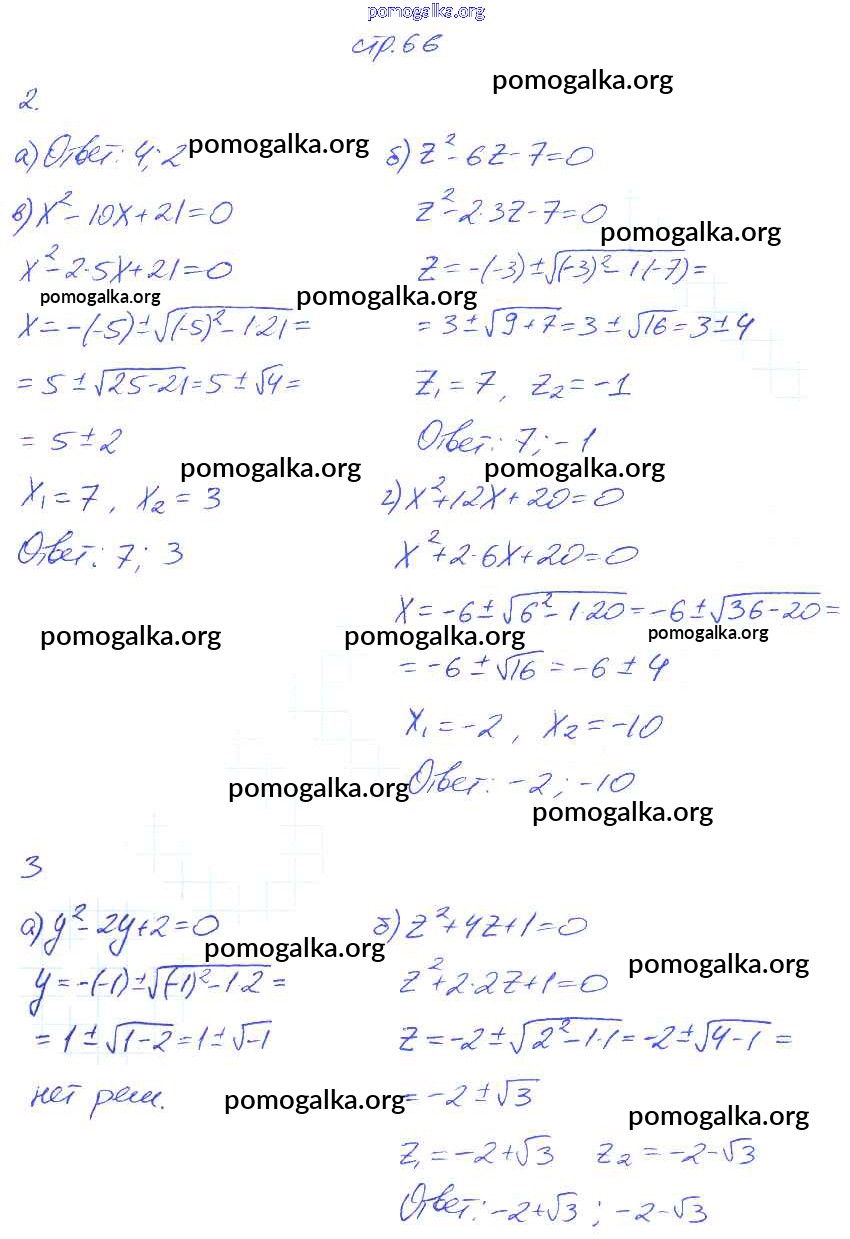 pomogalka.org
стр.66
pomogalka.org
2.
а) Ответ: 4; 2
pomogalka.org
в) x² - 10x + 21 = 0
x² - 2·5x + 21 = 0
pomogalka.org
pomogalka.org
x = -(-5) ± √(-5)² - 1·21 =
= 5 ± √25-21 = 5 ± √4 =
= 5 ± 2
pomogalka.org
x₁ = 7, x₂ = 3
Ответ: 7; 3
pomogalka.org
б) z² - 6z - 7 = 0
z² - 2·3z - 7 = 0
pomogalka.org
z = -(-3) ± √(-3)² - 1(-7) =
pomogalka.org
= 3 ± √9+7 = 3 ± √16 = 3 ± 4
z₁ = 7, z₂ = -1
Ответ: 7; -1
pomogalka.org
г) x² + 12x + 20 = 0
x² + 2·6x + 20 = 0
x = -6 ± √6² - 1·20 = -6 ± √36-20 =
pomogalka.org
pomogalka.org
= -6 ± √16 = -6 ± 4
x₁ = -2, x₂ = -10
Ответ: -2; -10
pomogalka.org
pomogalka.org
3
а) y² - 2y + 2 = 0
pomogalka.org
y = -(-1) ± √(-1)² - 1·2 =
= 1 ± √1-2 = 1 ± √-1
нет реш.
pomogalka.org
б) z² + 4z + 1 = 0
pomogalka.org
z² + 2·2z + 1 = 0
z = -2 ± √2² - 1·1 = -2 ± √4-1 =
= -2 ± √3
pomogalka.org
z₁ = -2+√3 z₂ = -2-√3
Ответ: -2+√3; -2-√3